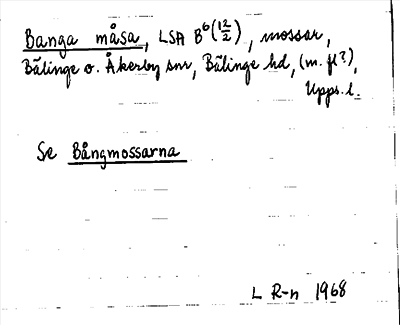 Banga måsa, LSA B⁶(12/2), mossar,
Bälinge o. Åkerby snr, Bälinge hd, (m. fl?),
Upps. l.
Se Bångmossarna
L R-n 1968